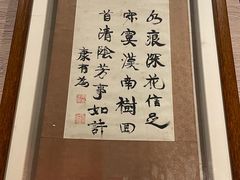 水痕深花信足
寂寞漢南樹回
首清陰芳事如許
康有為